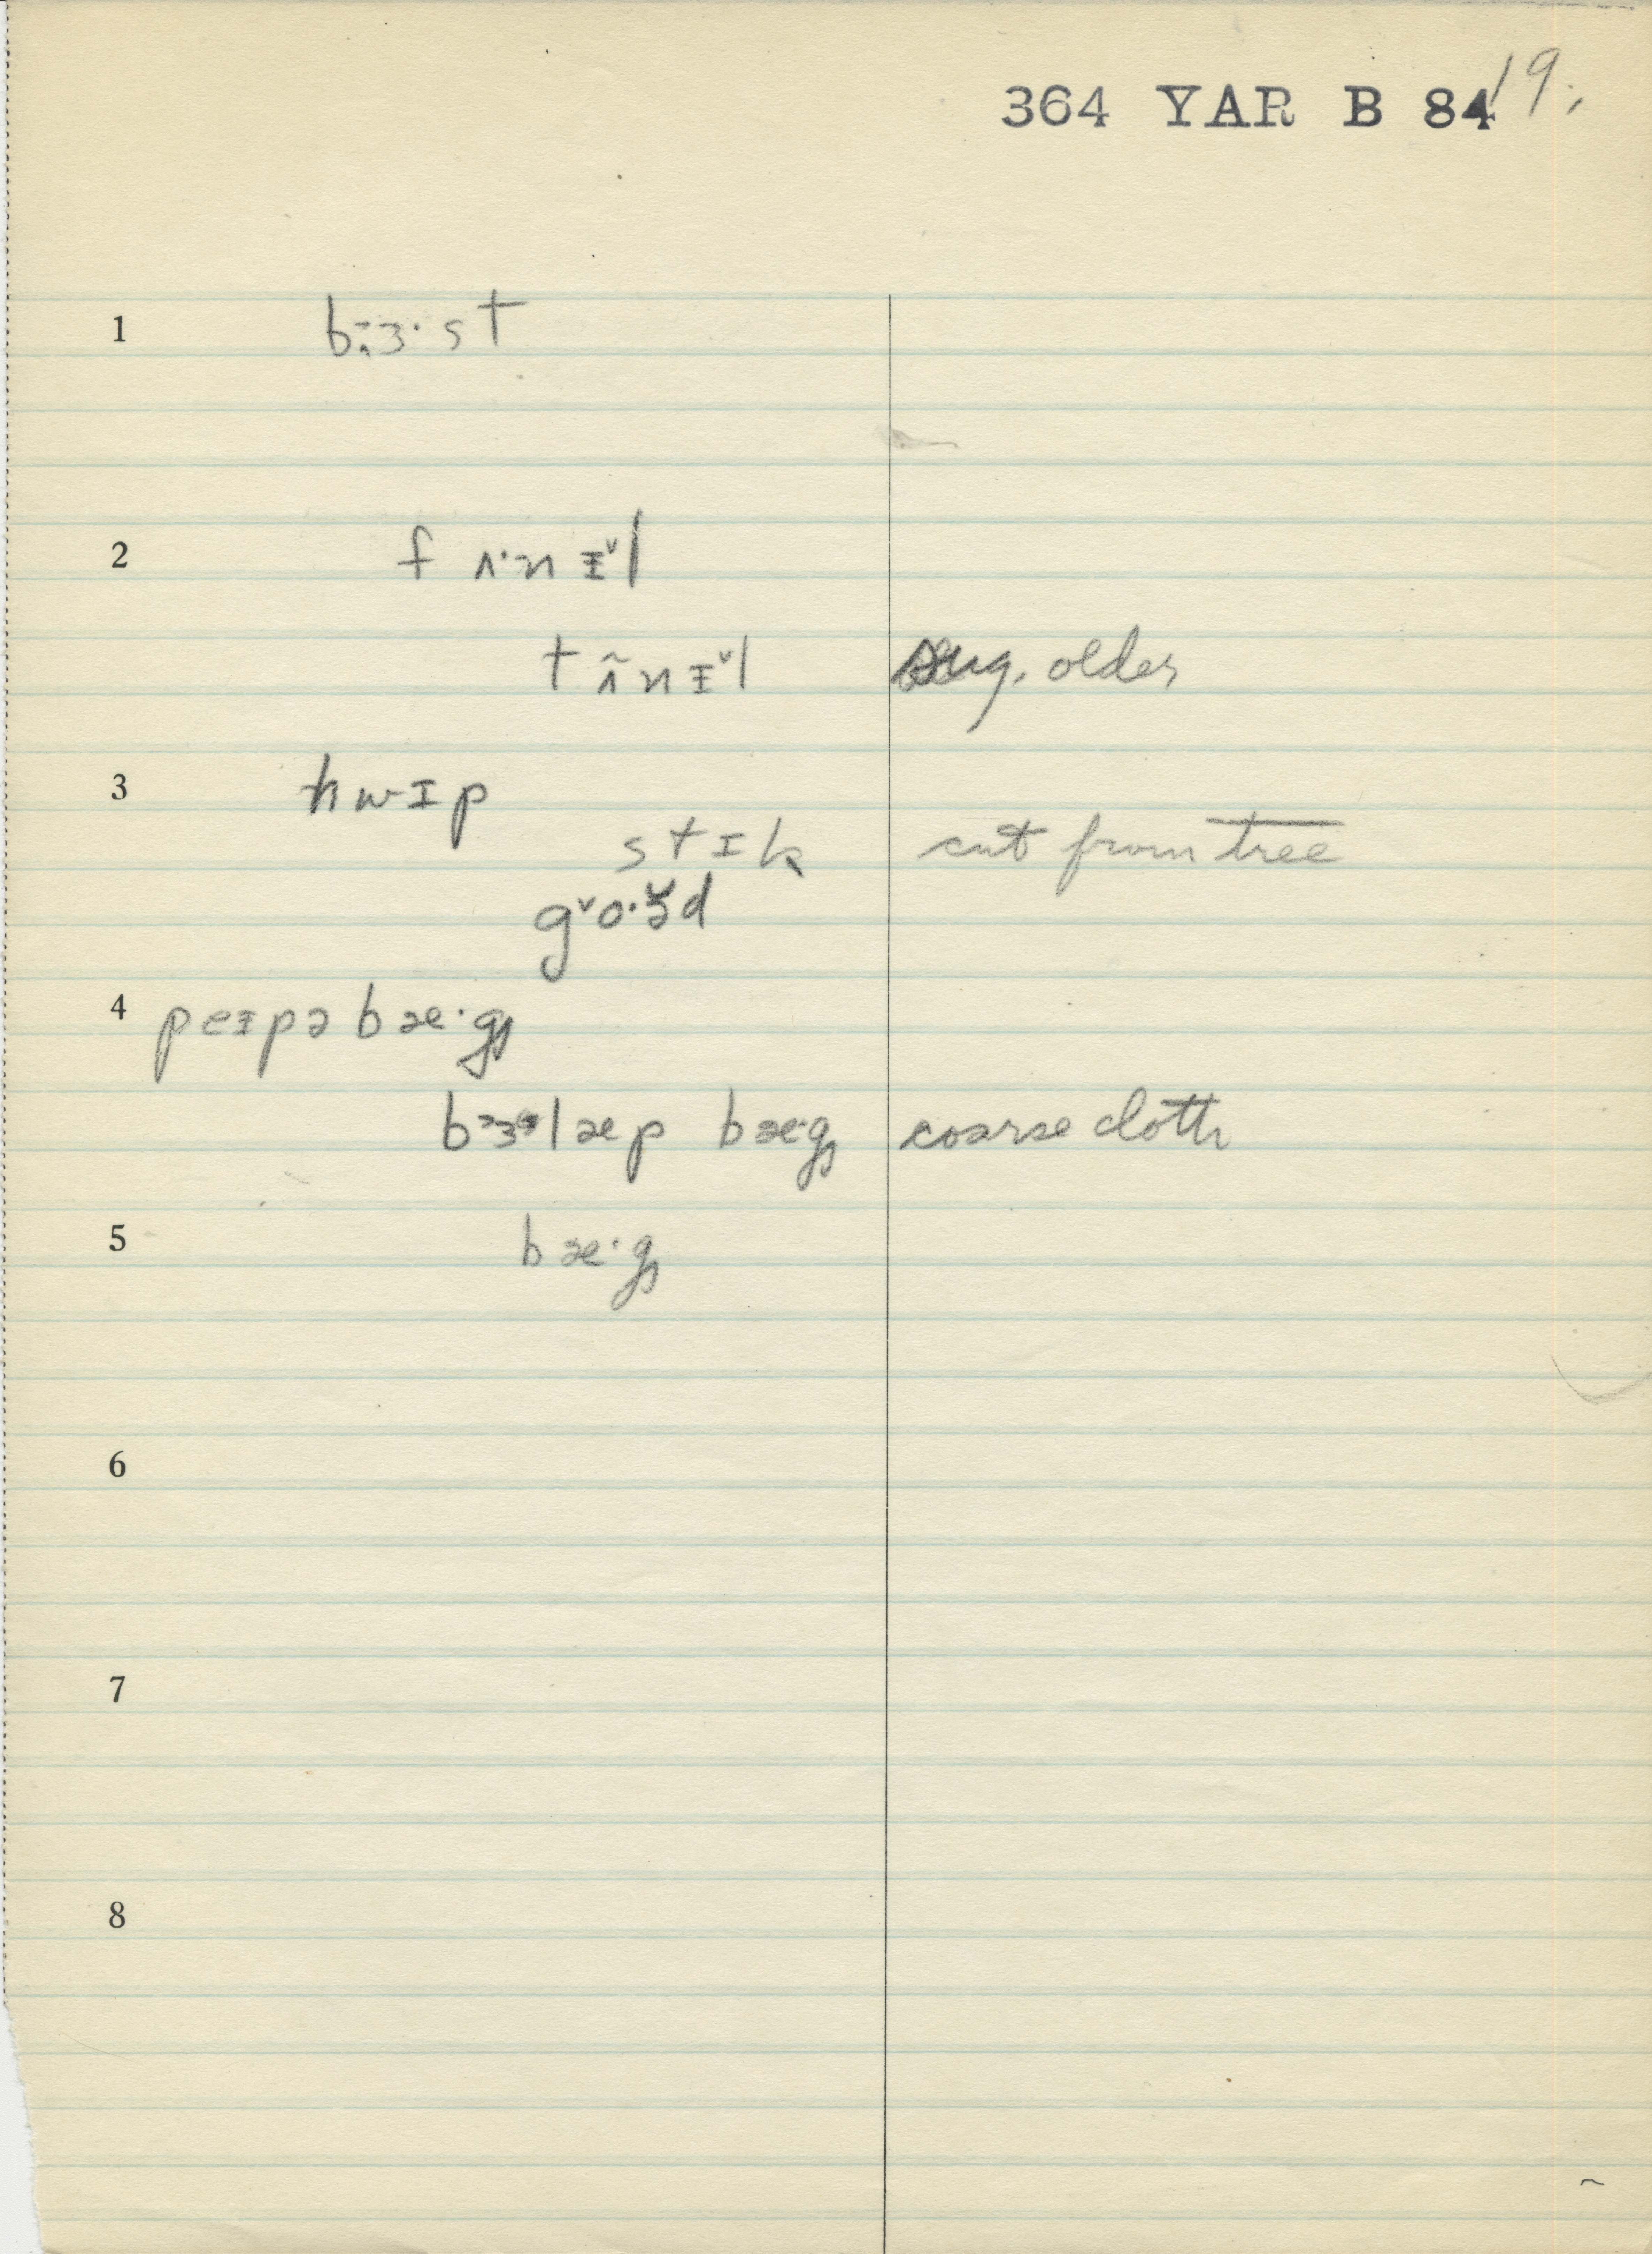 364 YAR B 84 19.
1 bɜ·st
2 f ʌ·n ɪ̵ˇl
t ʌ̃n ɪ̵ˇl sug. older
3 hwɪp
stɪk cut from tree
gˇo·ɜ̆d
4 peɪ̵pə bæ·g
bɜlæp bæ·g coarse cloth
5 bæ·g
6
7
8